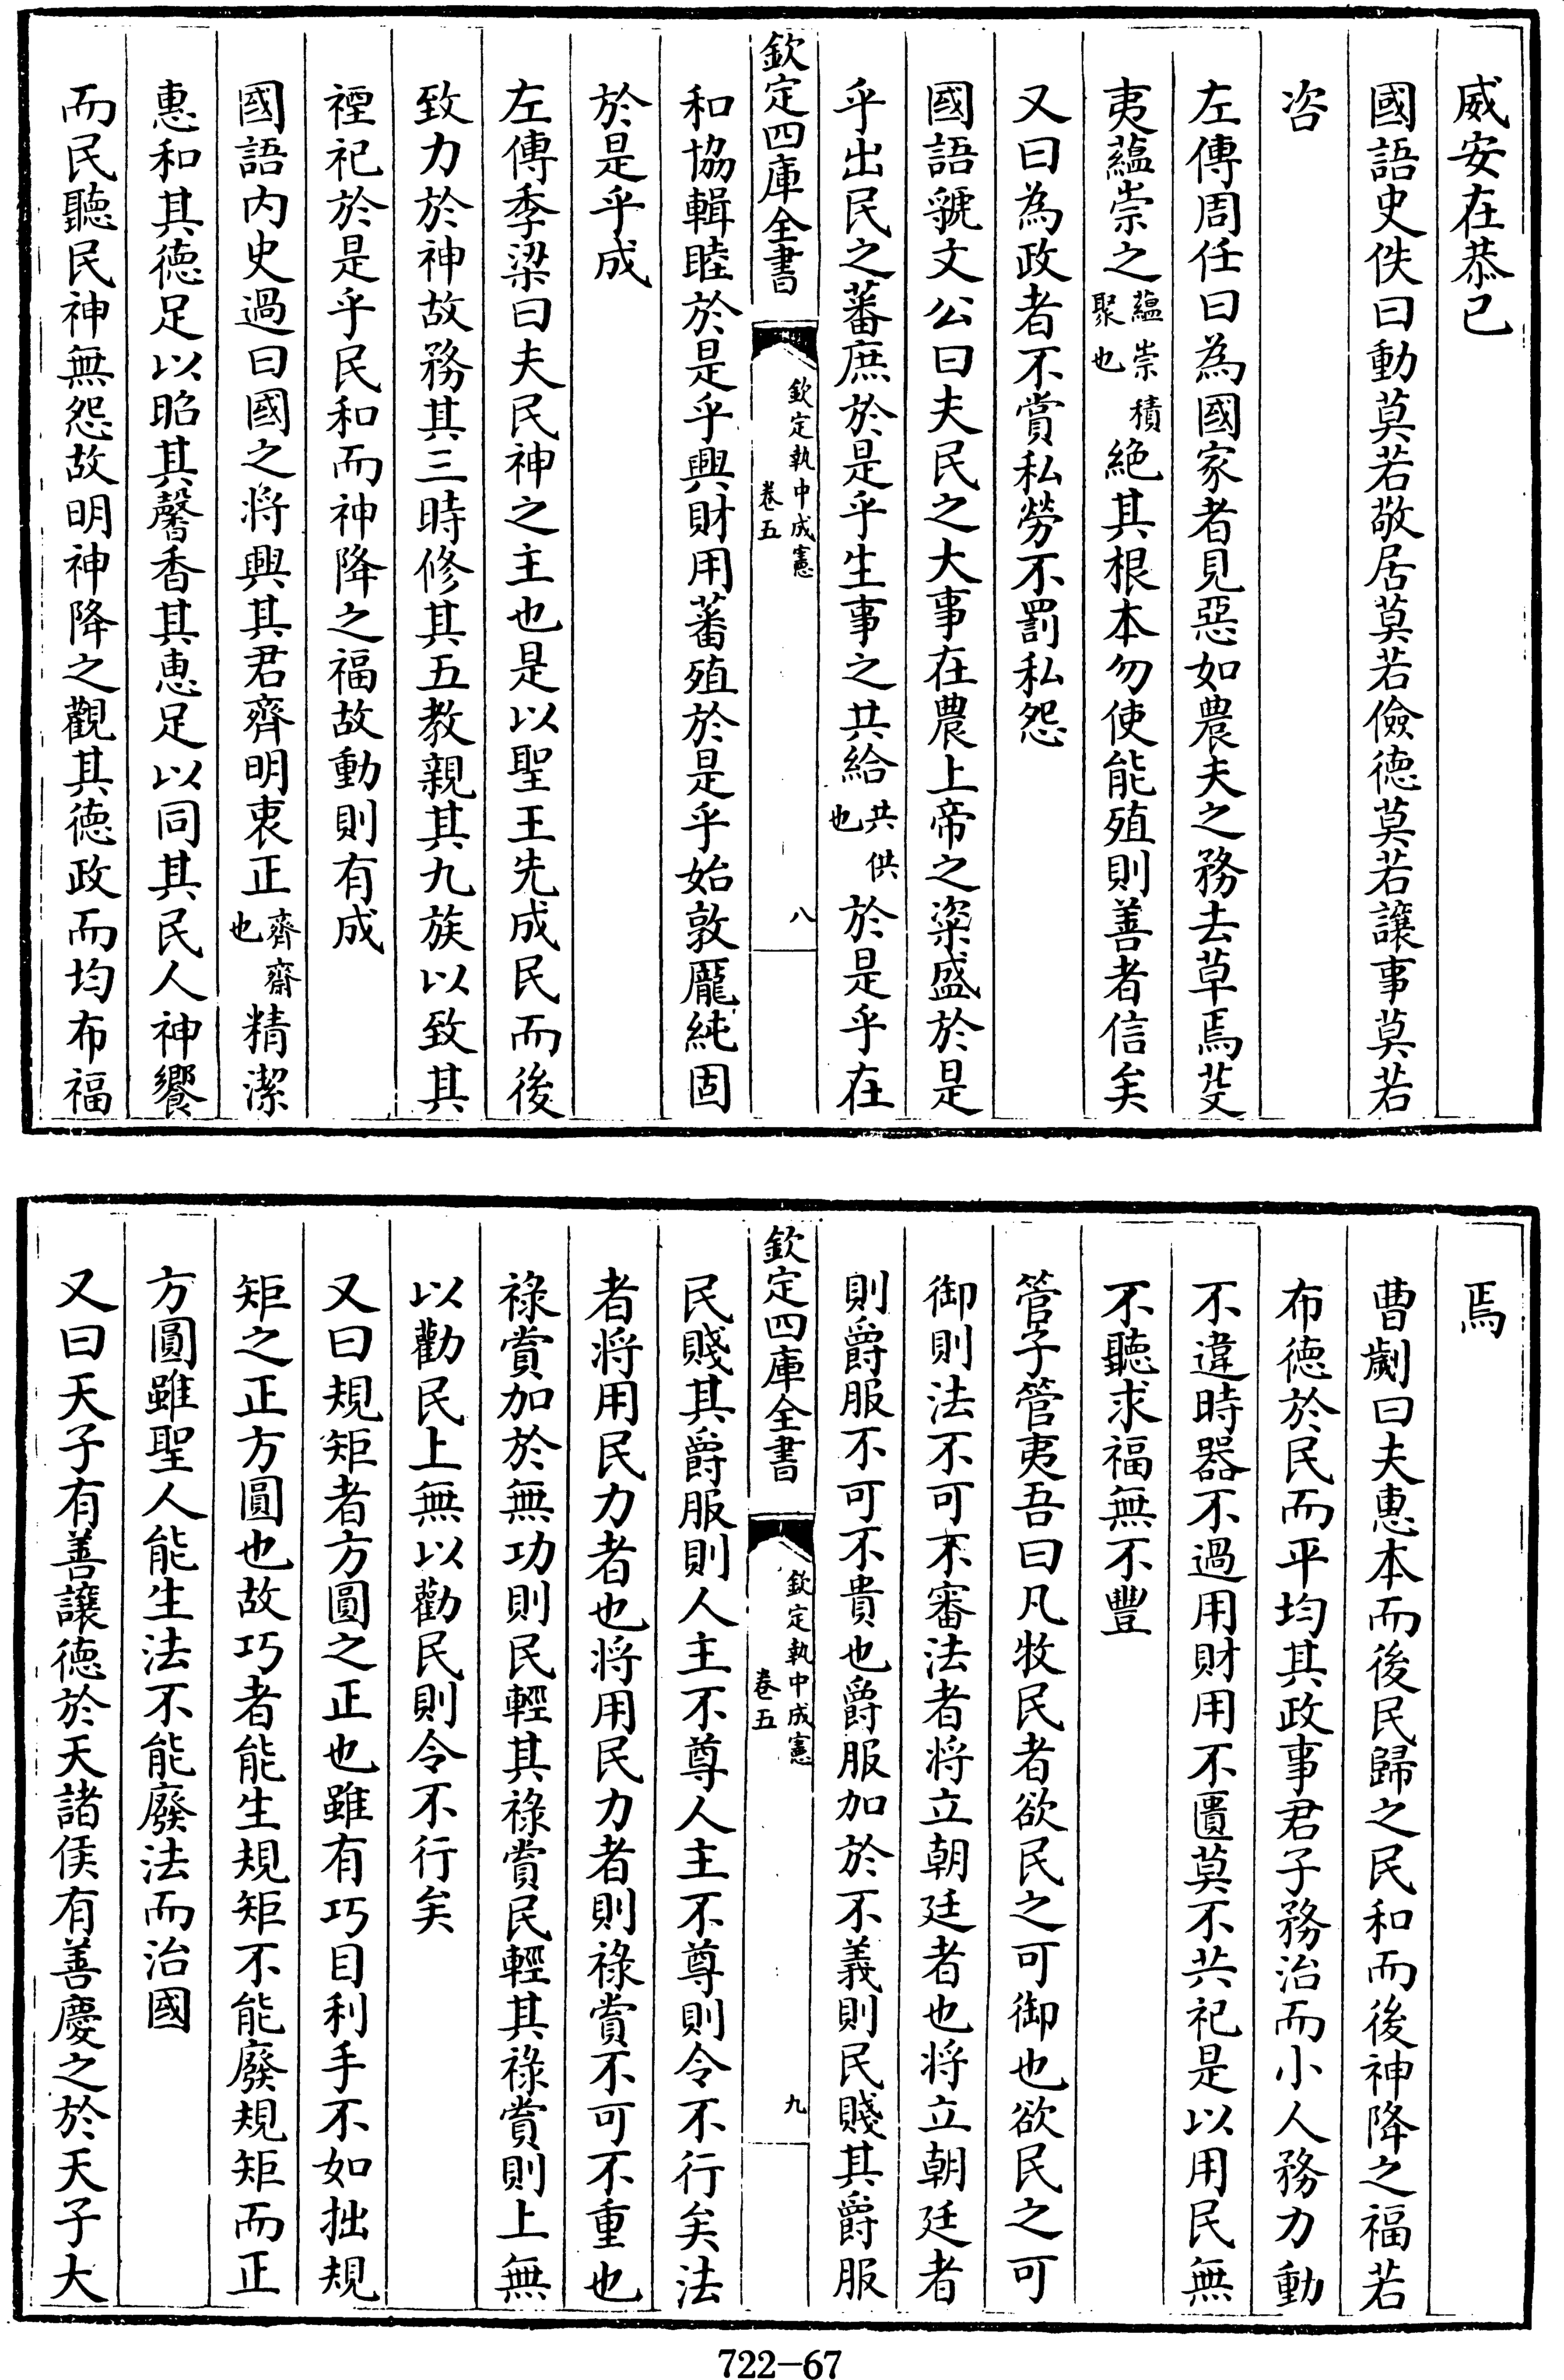 威安在恭己
國語史佚曰動莫若敬居莫若儉德莫若讓事莫若
咨
左傳周任曰為國家者見惡如農夫之務去草焉芟
夷蘊崇之蘊崇積聚也絕其根本勿使能殖則善者信矣
又曰為政者不賞私勞不罰私怨
國語虢文公曰夫民之大事在農上帝之粢盛於是
乎出民之蕃庶於是乎生事之共給共供也於是乎在
欽定四庫全書
欽定執中成憲
卷五
八
和協輯睦於是乎興財用蕃殖於是乎始敦厖純固
於是乎成
左傳季梁曰夫民神之主也是以聖王先成民而後
致力於神故務其三時修其五教親其九族以致其
禋祀於是乎民和而神降之福故動則有成
國語內史過曰國之將興其君齊明衷正齊齋也精潔
惠和其德足以昭其馨香其惠足以同其民人神饗
而民聽民神無怨故明神降之觀其德政而均布福
焉
曹劌曰夫惠本而後民歸之民和而後神降之福若
布德於民而平均其政事君子務治而小人務力動
不違時器不過用財用不匱莫不共祀是以用民無
不聽求福無不豐
管子管夷吾曰凡牧民者欲民之可御也欲民之可
御則法不可不審法者將立朝廷者也將立朝廷者
則爵服不可不貴也爵服加於不義則民賤其爵服
欽定四庫全書
欽定執中成憲
卷五
九
民賤其爵服則人主不尊人主不尊則令不行矣法
者將用民力者也將用民力者則祿賞不可不重也
祿賞加於無功則民輕其祿賞民輕其祿賞則上無
以勸民上無以勸民則令不行矣
又曰規矩者方圓之正也雖有巧目利手不如拙規
矩之正方圓也故巧者能生規矩不能廢規矩而正
方圓雖聖人能生法不能廢法而治國
又曰天子有善讓德於天諸侯有善慶之於天子大
722-67